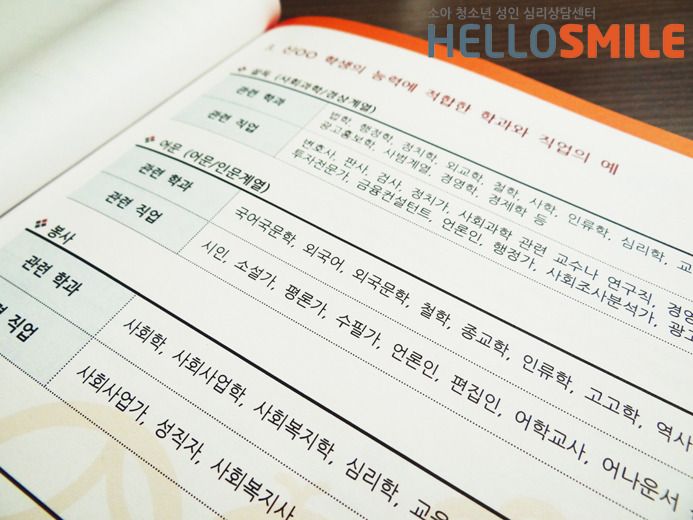 소아 청소년 성인 심리상담센터
HELLOSMILE
신OO 학생의 능력에 적합한 학과와 직업의 예
(사회과학/경상계열)
관련 학과
법학, 행정학, 정치학, 외교학, 철학, 사학, 인류학, 심리학,
광고홍보학, 사범계열, 경영학, 경제학 등
관련 직업
변호사, 판사, 검사, 정치가, 사회과학 관련 교수나 연구직,
투자전문가, 금융컨설턴트, 언론인, 행정가, 사회조사분석가,
❖ 어문 (어문/인문계열)
관련 학과
국어국문학, 외국어, 외국문학, 철학, 종교학, 인류학, 고고학, 역사
관련 직업
시인, 소설가, 평론가, 수필가, 언론인, 편집인, 어학교사, 아나운서
❖ 봉사
관련 학과
사회학, 사회사업학, 사회복지학, 심리학, 교육
직업
사회사업가, 성직자, 사회복지사